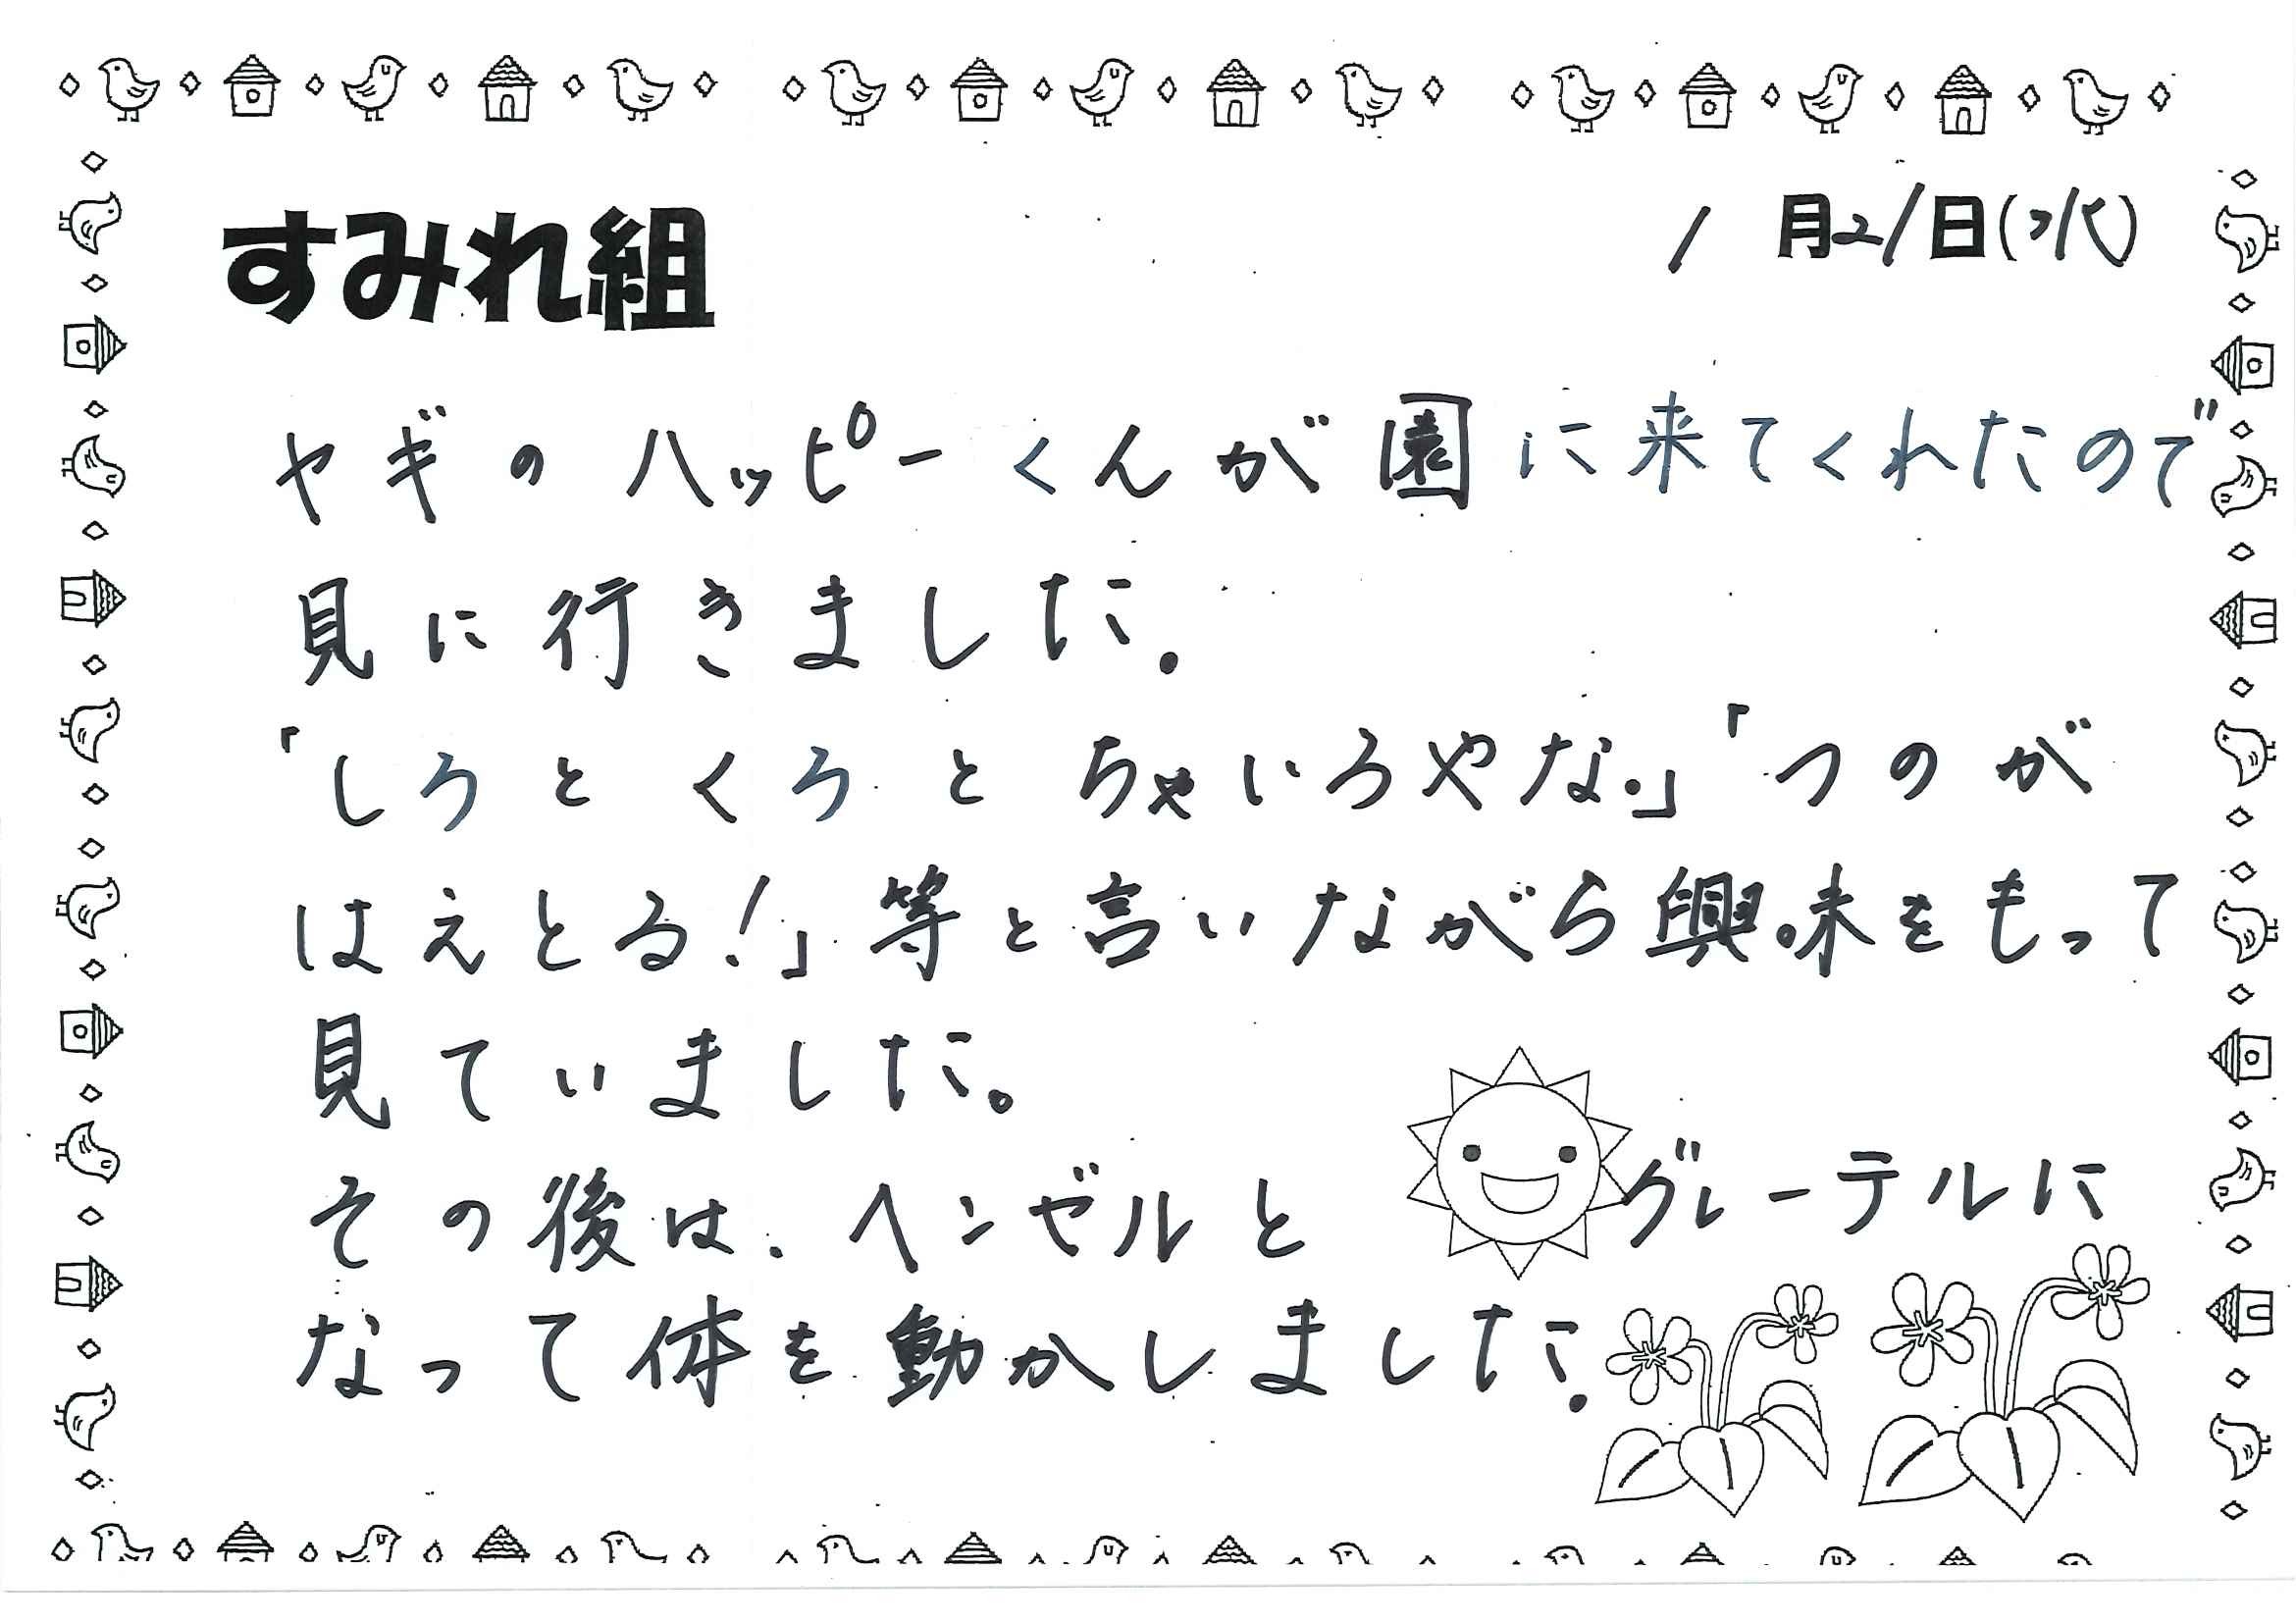 すみれ組
1月21日(水)
ヤギのハッピーくんが園に来てくれたので
見に行きました。
「しろとくろとちゃいろやな。」「つのが
はえとる!」等と言いながら興味をもって
見ていました。
その後は、ヘンゼルとグレーテルに
なって体を動かしました。